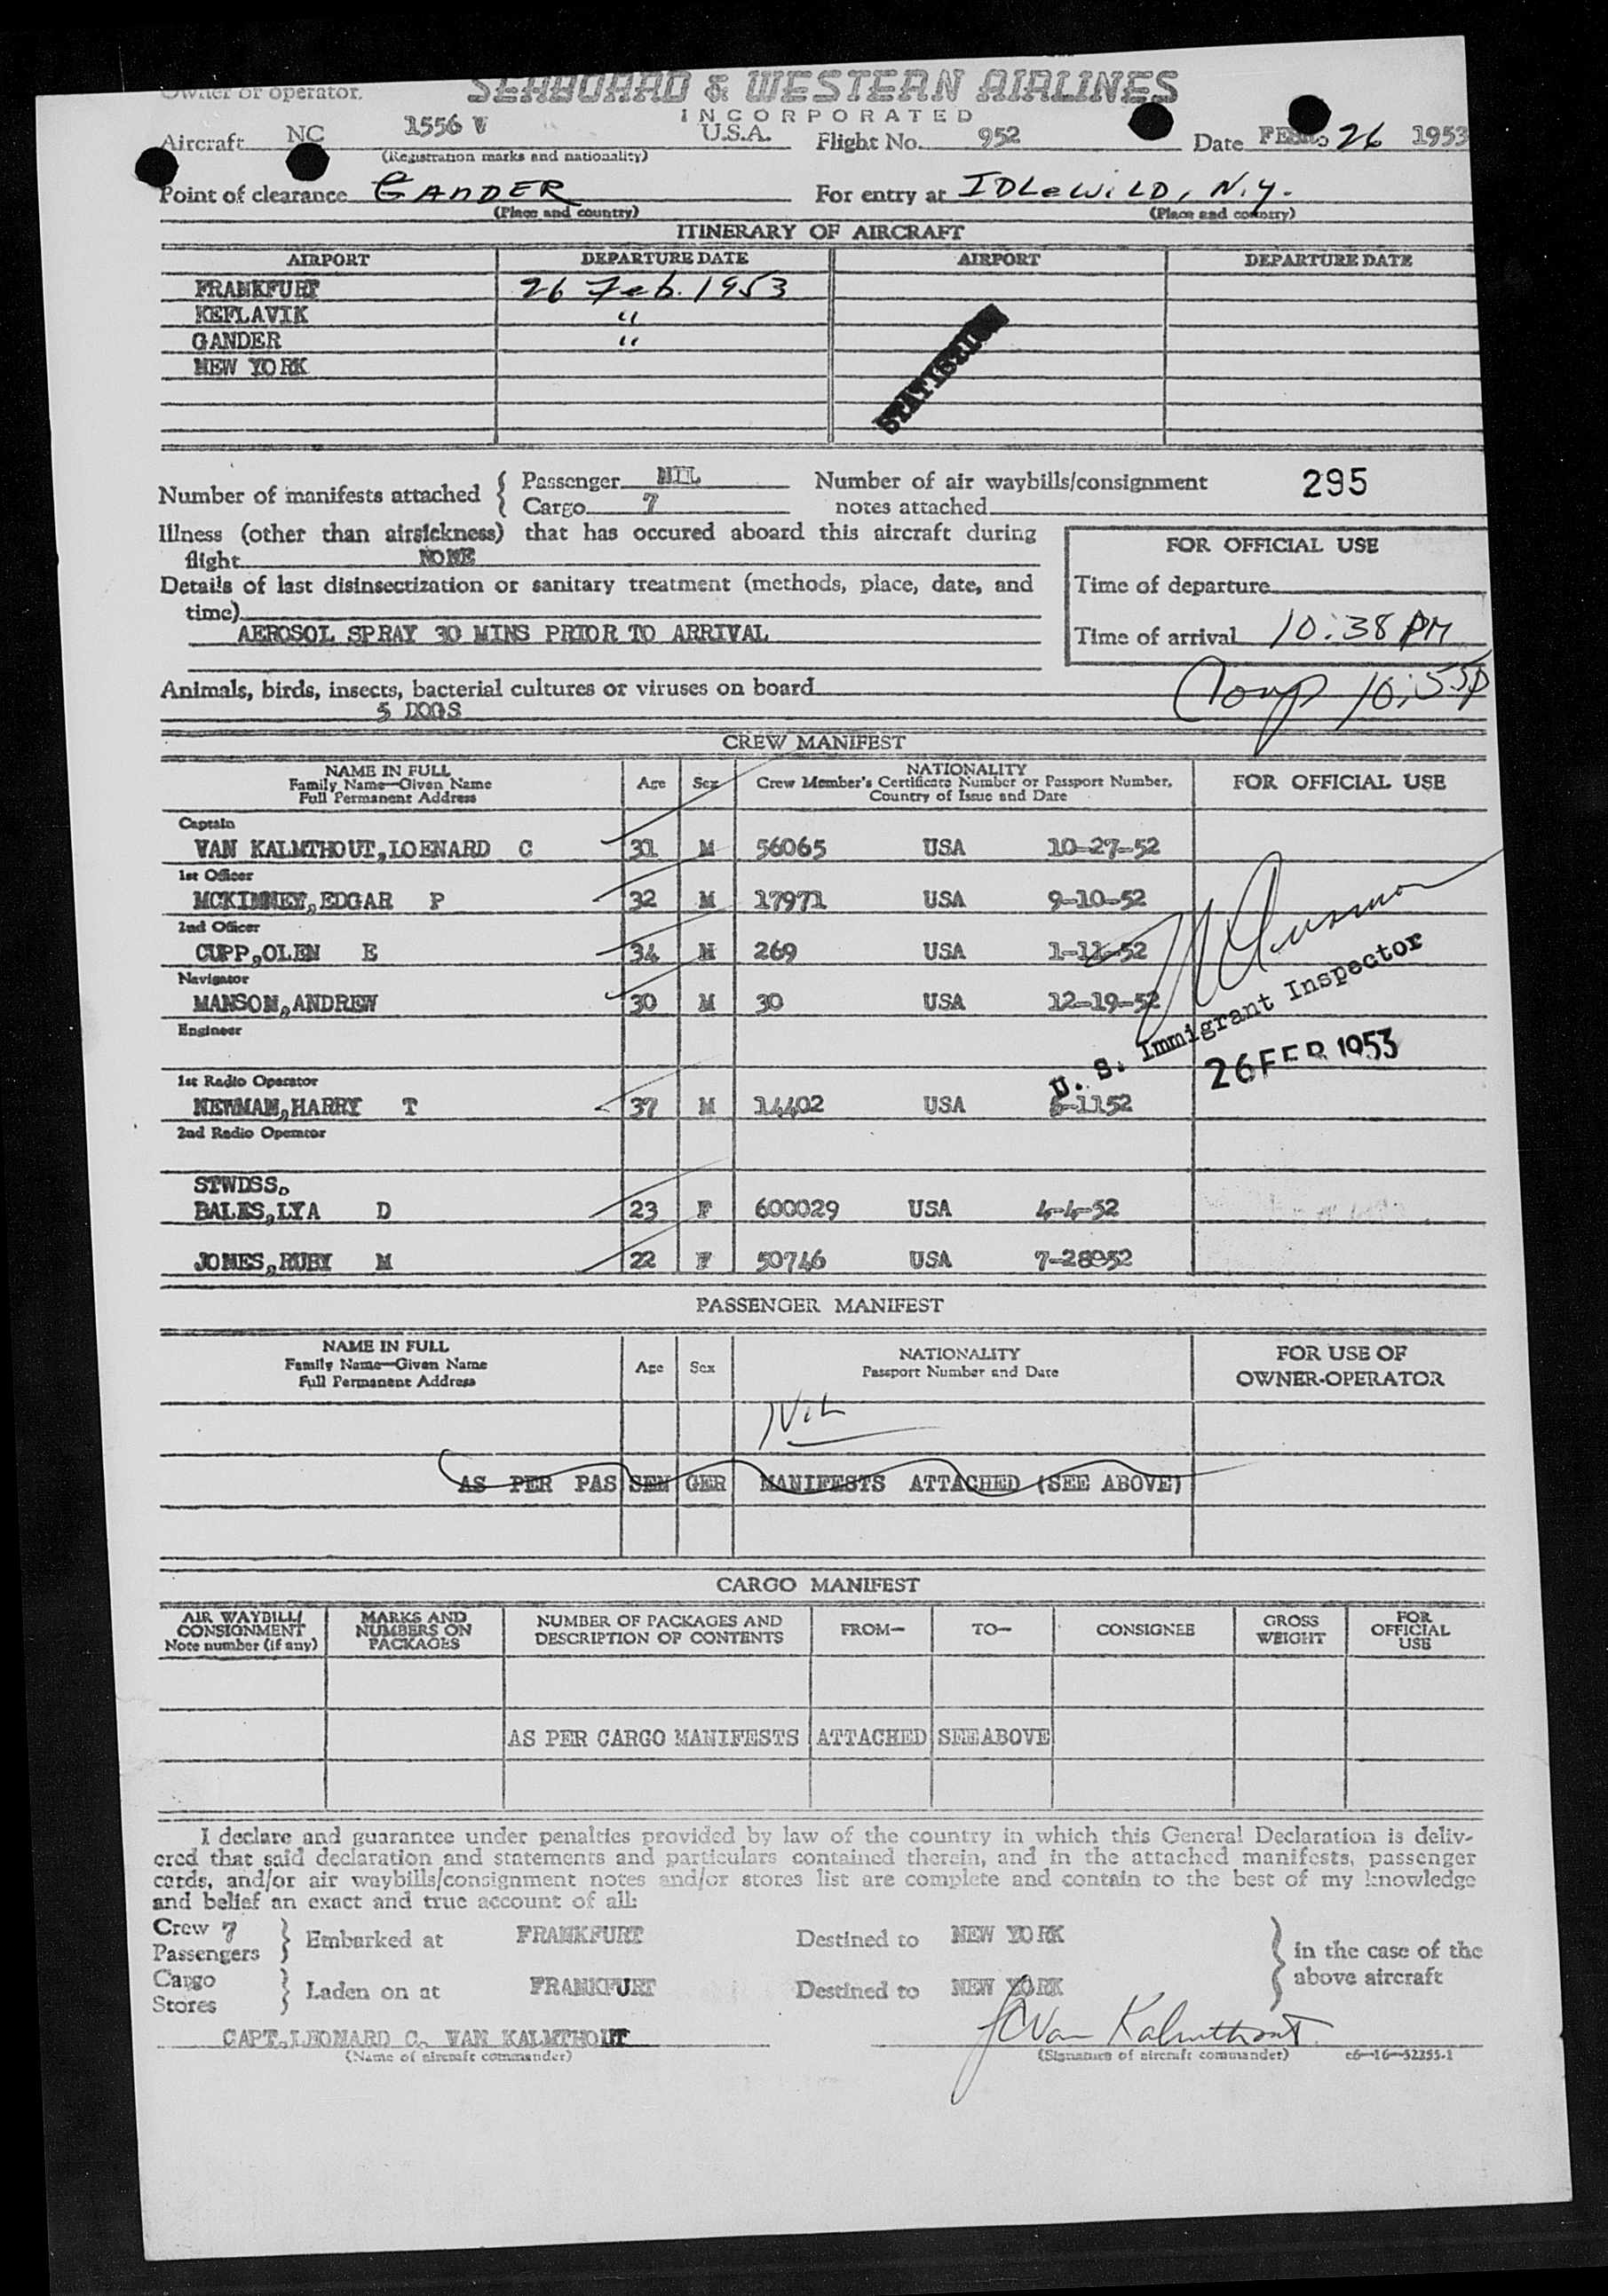 Owner or operator. SEABOARD & WESTERN AIRLINES
INCORPORATED
Aircraft NC 1556 V U.S.A. Flight No. 952 Date FEB. 26 1953
(Registration marks and nationality)
Point of clearance GANDER For entry at IDLeWiLD, N.Y.
(Place and country) (Place and country)
ITINERARY OF AIRCRAFT
AIRPORT DEPARTURE DATE AIRPORT DEPARTURE DATE
FRANKFURT 26 Feb. 1953
KEFLAVIK "
GANDER "
NEW YORK
STATISTICS
Number of manifests attached { Passenger NIL Number of air waybills/consignment 295
Cargo 7 notes attached
Illness (other than airsickness) that has occured aboard this aircraft during
flight NONE
FOR OFFICIAL USE
Details of last disinsectization or sanitary treatment (methods, place, date, and
time)
AEROSOL SPRAY 30 MINS PRIOR TO ARRIVAL
Time of departure
Time of arrival 10:38 PM
Comp 10:55P
Animals, birds, insects, bacterial cultures or viruses on board
5 DOGS
CREW MANIFEST
NAME IN FULL
Family Name—Given Name
Full Permanent Address
Age Sex
NATIONALITY
Crew Member's Certificate Number or Passport Number,
Country of Issue and Date
FOR OFFICIAL USE
Captain
VAN KALMTHOUT,LOENARD C 31 M 56065 USA 10-27-52
1st Officer
MCKINNEY,EDGAR P 32 M 17971 USA 9-10-52
2nd Officer
CUPP,OLEN E 34 M 269 USA 1-11-52
Navigator
MANSON,ANDREW 30 M 30 USA 12-19-52
Engineer
U. S. Immigrant Inspector
26 FEB 1953
1st Radio Operator
NEWMAN,HARRY T 37 M 14402 USA 6-1152
2nd Radio Operator
STWDSS.
BALES,LYA D 23 F 600029 USA 4-4-52
JONES,RUBY M 22 F 50746 USA 7-28052
PASSENGER MANIFEST
NAME IN FULL
Family Name—Given Name
Full Permanent Address
Age Sex
NATIONALITY
Passport Number and Date
FOR USE OF
OWNER-OPERATOR
NiL
AS PER PASSENGER MANIFESTS ATTACHED (SEE ABOVE)
CARGO MANIFEST
AIR WAYBILL/
CONSIGNMENT
Note number (if any)
MARKS AND
NUMBERS ON
PACKAGES
NUMBER OF PACKAGES AND
DESCRIPTION OF CONTENTS
FROM— TO— CONSIGNEE
GROSS
WEIGHT
FOR
OFFICIAL
USE
AS PER CARGO MANIFESTS ATTACHED SEE ABOVE
I declare and guarantee under penalties provided by law of the country in which this General Declaration is deliv-
ered that said declaration and statements and particulars contained therein, and in the attached manifests, passenger
cards, and/or air waybills/consignment notes and/or stores list are complete and contain to the best of my knowledge
and belief an exact and true account of all:
Crew 7
Passengers } Embarked at FRANKFURT Destined to NEW YORK
Cargo
Stores } Laden on at FRANKFURT Destined to NEW YORK
} in the case of the
above aircraft
CAPT.LEONARD C. VAN KALMTHOUT LC Van Kalmthout.
(Name of aircraft commander) (Signature of aircraft commander) c6—16—52255-1